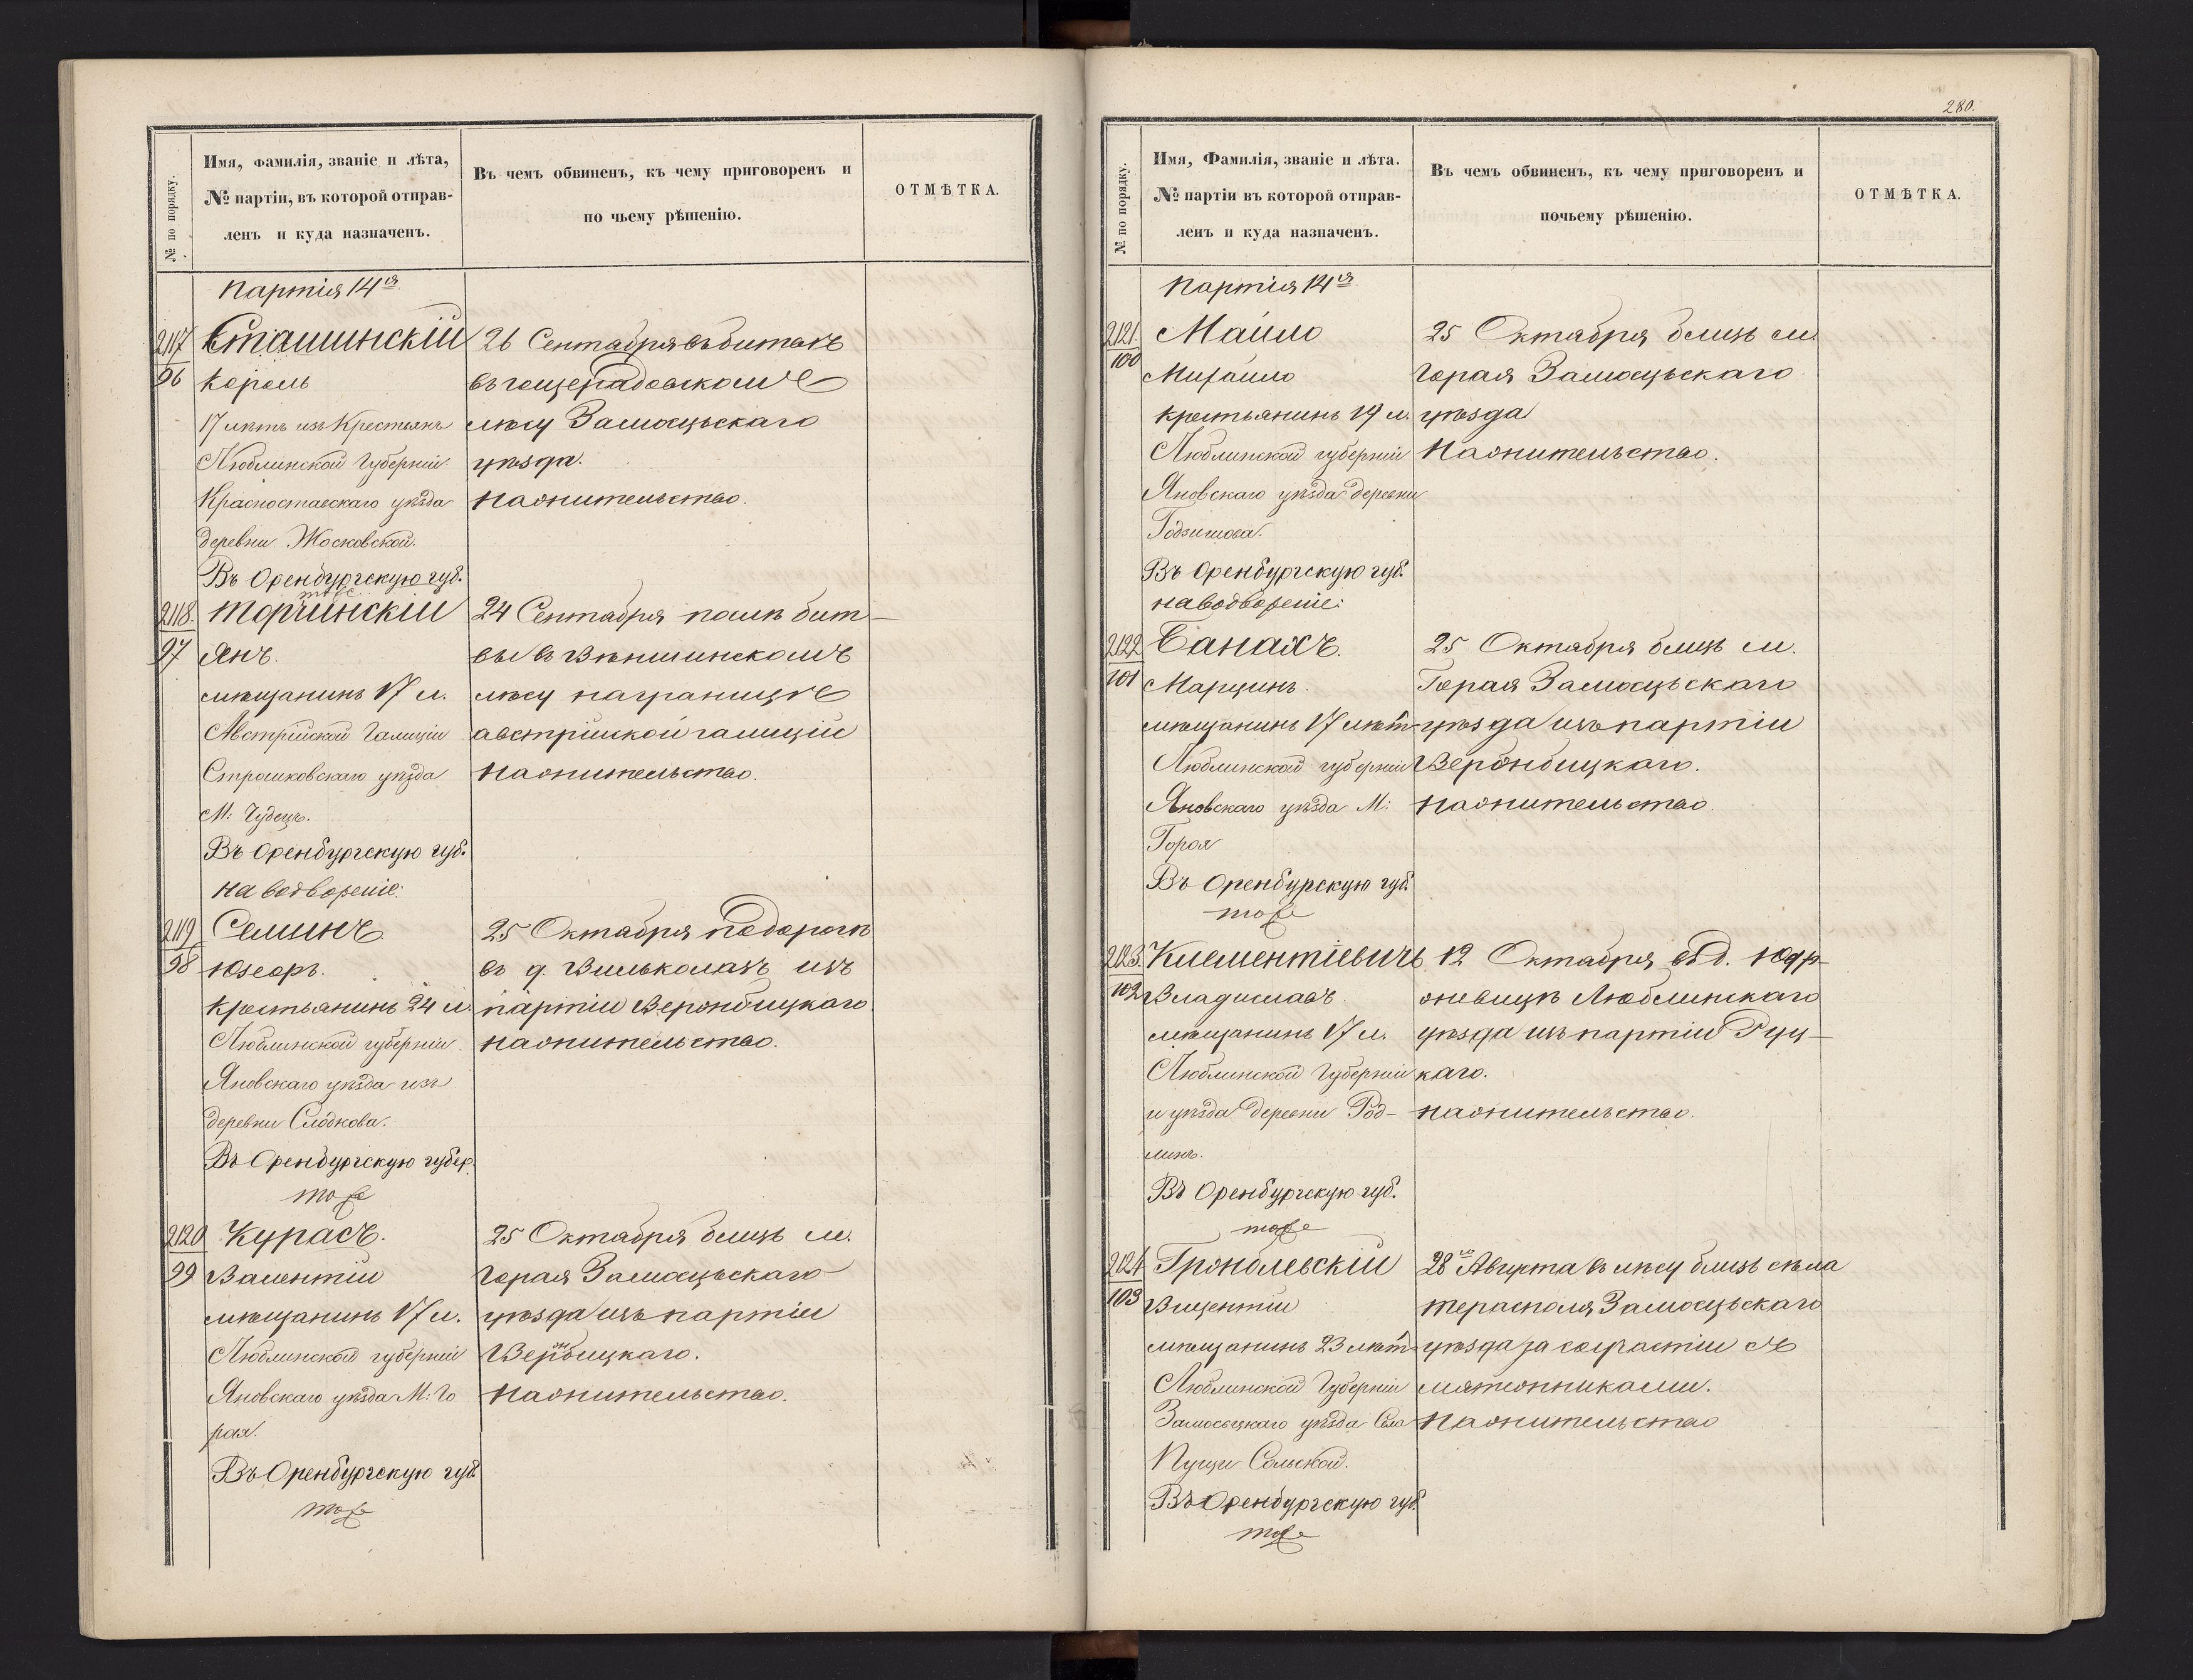 280.
№ по порядку.
Имя, Фамилія, званіе и лѣта,
№ партіи, въ которой отправ-
ленъ и куда назначенъ.
Въ чемъ обвиненъ, къ чему приговоренъ и
по чьему рѣшенію.
ОТМѢТКА.
Партія 14я
2117
96
Сташинскій
Кароль
17 лѣтъ изъ Крестьянъ
Люблинской Губерніи
Красноставскаго уѣзда
деревни
Въ Оренбургскую губ.
тоже
26 Сентября въ битвѣ
въ
лѣсу Замосцьскаго
уѣзда.
На жительство.
2118.
97
Торчинскій
Янъ.
мѣщанинъ 17 л.
Австрійской Галиціи
уѣзда
М: Чудецъ.
Въ Оренбургскую губ.
на водвореніе:
24 Сентября послѣ бит-
вы въ
лѣсу на границѣ
австрійской галиціи
На жительство.
2119
98
Семинъ
Юзефъ.
крестьянинъ 24 л.
Люблинской губерніи
Яновскаго уѣзда изъ
деревни Слодкова.
Въ Оренбургскую губер.
тоже
25 Октября по дорогѣ
въ д. Вильколазъ изъ
партіи Веронбицкаго
на жительство.
2120
99
Курасъ.
Валентій
мѣщанинъ 17 л.
Люблинской губерніи
Яновскаго уѣзда М: Го
рая.
Въ Оренбургскую губ.
тоже
25 Октября близь м.
Горая Замосцьскаго
уѣзда изъ партіи
Вербицкаго.
На жительство.
№ по порядку.
Имя, Фамилія, званіе и лѣта.
№ партіи въ которой отправ-
ленъ и куда назначенъ.
Въ чемъ обвиненъ, къ чему приговоренъ и
почьему рѣшенію.
ОТМѢТКА.
Партія 14я
2121.
100
Майло
Михайло
крестьянинъ 19 л.
Люблинской губерніи
Яновскаго уѣзда деревни
Годзишова.
Въ Оренбургскую губ.
на водвореніе:
25 Октября близь м.
Горая Замосцьскаго
уѣзда
На жительство.
2122
101
Банахъ.
Марцинъ.
мѣщанинъ 17 лѣт
Люблинской губерніи
Яновскаго уѣзда М:
Горая
Въ Оренбурскую губ.
тоже
25 Октября близь м.
Горая Замосцьскаго
уѣзда изъ партіи
Веронбицкаго.
на жительство.
2123.
102
Клементіевичъ
Владиславъ
мѣщанинъ 17 л.
Люблинской Губерніи
и уѣзда деревни Род-
линъ.
Въ Оренбургскую губ.
тоже
12 Октября въ д.
Люблинскаго
уѣзда изъ партіи Руц-
каго.
на жительство.
2124
103
Гронблевскій
Вицентій
мѣщанинъ 23 лѣт
Люблинской Губерніи
Замосцьскаго уѣзда Села
Пущи Сольской.
Въ Оренбургскую губ.
тоже
28го Августа въ лѣсу близь села
Тераспола Замосцьскаго
уѣзда за соучастіи съ
мятежниками.
На жительство